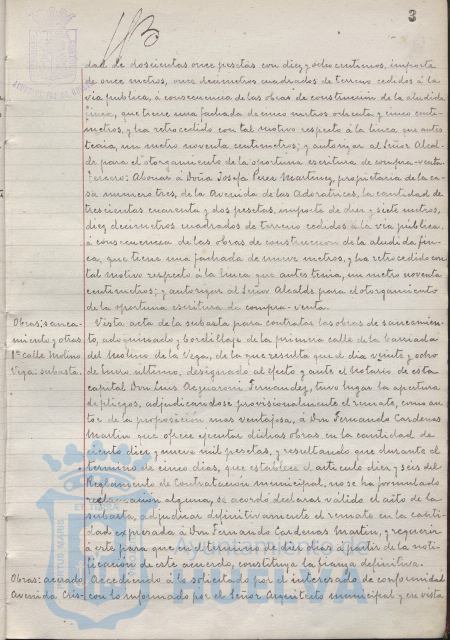 3
dad de doscientas once pesetas con diez y ocho centimos, importe
de once metros, once decimetros cuadrados de terreno cedidos á la
via publica, á consecuencia de las obras de construccion de la aludida
finca, que tiene una fachada de cinco metros ochenta y cinco centi-
metros, y ha retrocedido con tal motivo respecto á la linea que antes
tenia, un metro noventa centimetros; y autorizar al Señor Alcal-
de para el otorgamiento de la oportuna escritura de compra-venta
Tercero: Abonar á Doña Josefa Perez Martinez, propietaria de la ca-
sa numero tres, de la Avenida de las Adoratrices, la cantidad de
trescientas cuarenta y dos pesetas, importe de diez y siete metros,
diez decimetros cuadrados de terreno cedidos á la via pública,
á consecuencia de las obras de construccion de la aludida fin-
ca, que tiene una fachada de nueve metros, y ha retrocedido con
tal motivo respecto á la linea que antes tenia, un metro noventa
centimetros; y autorizar al Señor Alcalde para el otorgamiento
de la oportuna escritura de compra-venta.
Obras: sanea-
miento y otras
1ª calle Molino
Vega: subasta.
Vista acta de la subasta para contratar las obras de saneamien-
to, adoquinado y bordillaje de la primera calle de la barriada
del Molino de la Vega, de la que resulta que el dia veinte y ocho
de Enero último, designado al efecto y ante el Notario de esta
capital Don Luis Azcuaroni Fernandez, tuvo lugar la apertura
de pliegos, adjudicandose provisionalmente el remate, como au-
tor de la proposicion mas ventajosa, á Don Fernando Cardenas
Martin que ofrece ejecutar dichas obras en la cantidad de
ciento diez y nueve mil pesetas, y resultando que durante el
termino de cinco dias, que establece el articulo diez y seis del
Reglamento de Contratacion municipal, no se ha formulado
reclamacion alguna, se acordo declarar válido el acto de la
subasta, adjudicar definitivamente el remate en la canti-
dad expresada á Don Fernando Cardenas Martin, y requerir
á este para que en termino de diez dias á partir de la noti-
ficacion de este acuerdo, constituya la fianza definitiva.
Obras: acerado
Avenida Cris-
Accediendo á lo solicitado por el interesado de conformidad
con lo informado por el Señor Arquitecto municipal y en vista